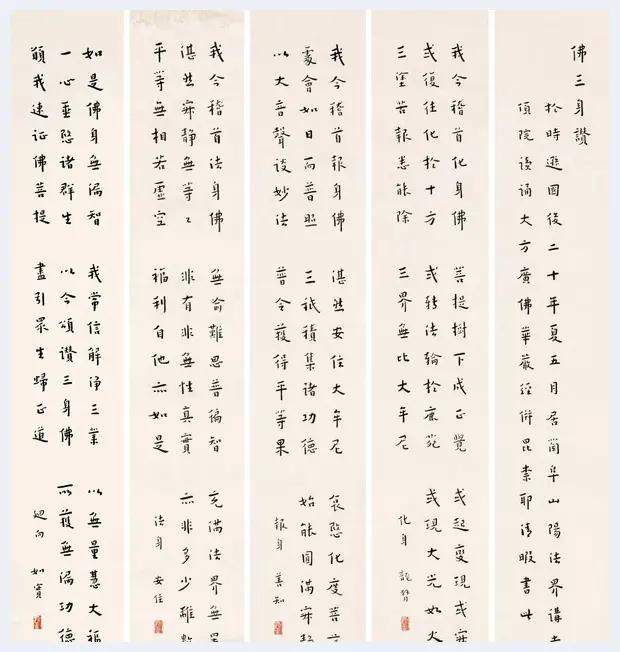 佛三身讚
於時遯國後二十年夏五月居 阜山陽法界講
院 誦大方廣佛華嚴經併毘柰耶清暇書此
我今稽首化身佛 菩提樹下成正覺 或起變現或寂
或復往化於十方 或轉法輪於鹿苑 或現大光如火
三塗苦報悉能除 三界無比大牟尼 化身
我今稽首報身佛 湛然安住大牟尼 哀愍化度菩
處會如日而普照 三祇積集諸功德 始能圓滿寂
以大音聲談妙法 普令獲得平等果 報身 善知
我今稽首法身佛 無喻難思普徧智 充滿法界無
湛然寂静無等〻 非有非無性真實 亦非多少離數
平等無相若虛空 福利自他亦如是 法身 安住
如是佛身無漏智 我常信解淨三業 以無量慧大福
一心垂愍諸群生 以今頌讚三身佛 所獲無漏功德
願我速证佛菩提 盡引眾生歸正道 迴向 如實